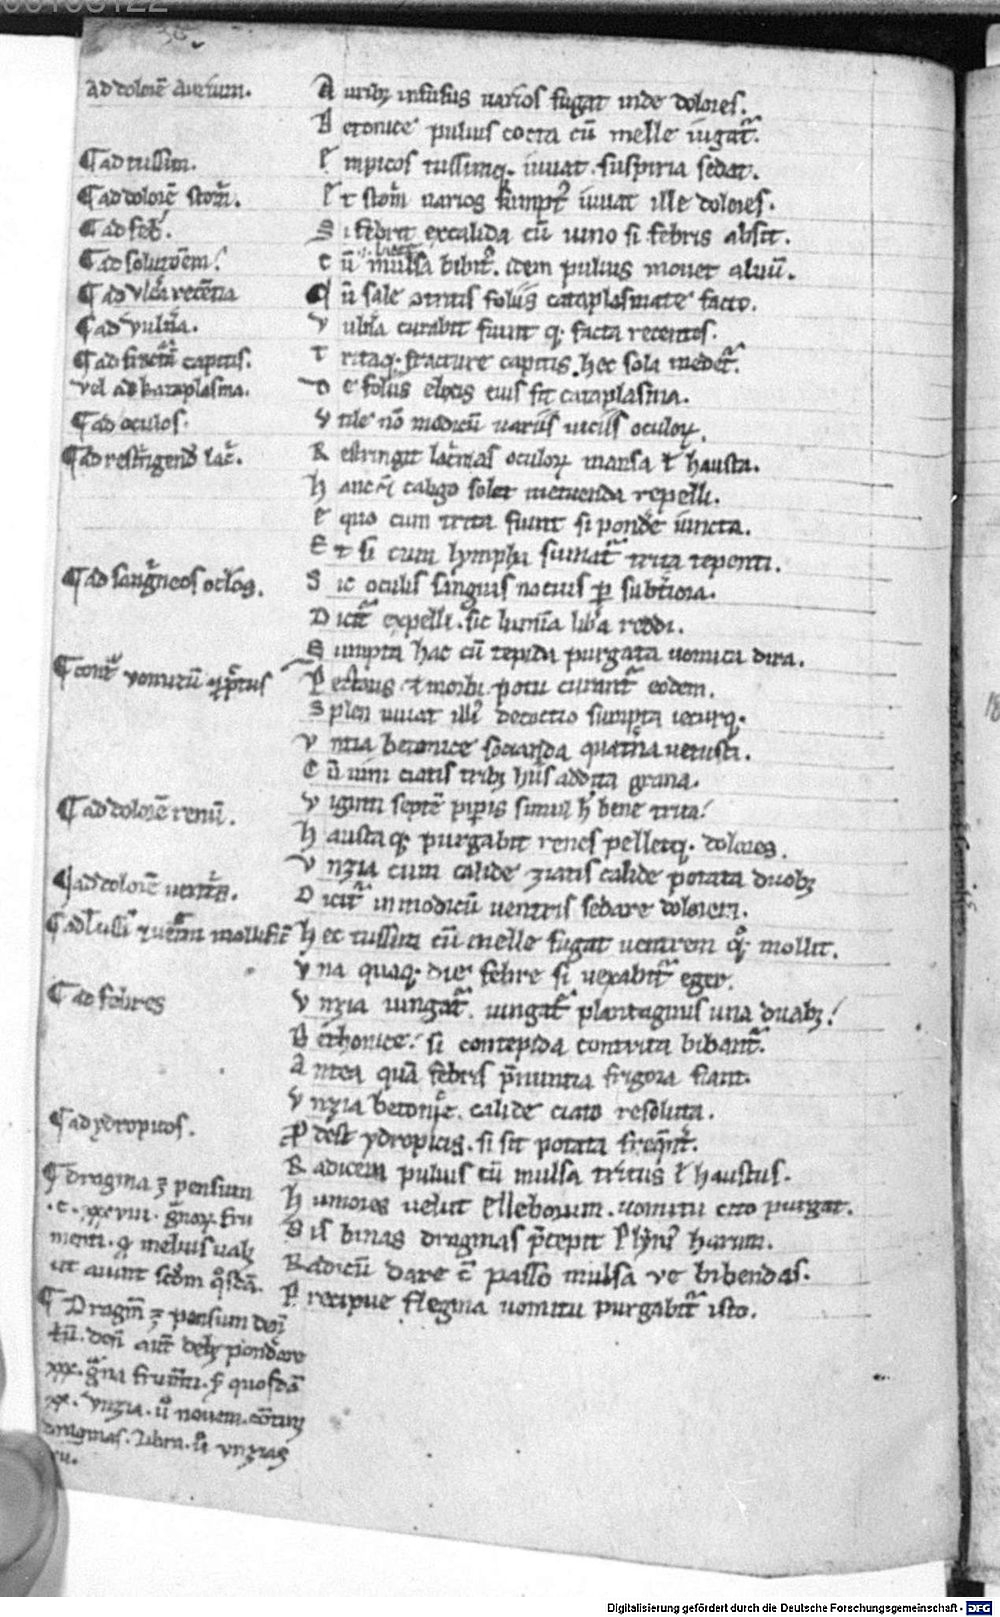 ad dolorē aurium.
A uribꝫ infusus varios fugat inde dolores.
B etonice pulvis cocta cū melle iugat̃.
¶ ad tussim.
E mpicos tussimqꝫ iuvat. suspiria sedat.
¶ ad dolorē stom̃.
E t stom̃ varios iuvat ille dolores.
¶ ad feb̃.
S i febrit ex calida cū vino si febris absit.
¶ ad solutōem.
C ū mulsa bibit̃. item pulvis movet alvū.
¶ ad vlc̃a recẽtia
C ū sale contritis foliis cataplasmate facto.
¶ ad vulña.
V ulña curabit fiunt qꝫ facta recentes.
¶ ad fractur̃ capitis.
T ritaqꝫ fracture capitis hec sola medet̃.
vel ad kataplasma.
D e foliis elixis eius fit cataplasma.
¶ ad oculos.
V tile nō modicū variis viciis oculoꝝ.
¶ ad rest̃igend̃ lac̃.
R estringit lac̃mas oculoꝝ mansa ł hausta.
H anc caligo solet metuenda repelli.
E quo cum trita fiunt si pondẽ iuncta.
E t si cum lympha sumat̃ trita tepenti.
¶ ad sang̃neos oc̃los.
S ic oculis sanguis nocuus ꝑ subt̃iora.
D icit̃ expelli. sic lumīa lib̃a reddi.
S umpta hac cū tepida purgata vomica dira.
¶ cont̃ vomicū
P ectoris ⁊ morbi potu curant̃ eodem.
S plen iuvat illi decoctio sumpta iecurqꝫ.
V ntia betonice socianda quat̃na vetusti.
C ū vini ciatis tribꝫ hiis addita grana.
¶ ad dolorē renū.
V iginti septē pip̃is simul h̃ bene trita.
H austaqꝫ purgabit renes pelletqꝫ dolores.
V nzia cum calide ziatis calide potata duobꝫ
¶ ad dolorē vent̃s.
D icit̃ inmodicū ventris sedare dolorem.
¶ ad tussī ⁊ vent̃m mollifit̃
H ec tussim cū melle fugat ventrem qꝫ mollit.
V na quaqꝫ die febre si vexabit̃ eger.
¶ ad febres
V nzia iungat̃. iungat̃ plantaginis una duabꝫ.
B ethonice. si con tepida contrita bibant̃.
A ntea quā febris p̃nuntia frigora fiant.
V nzia betonice. calide ciato resoluta.
¶ ad ydropicos.
P̃dest ydropicis. si sit potata freq̃nt̃.
R adicem pulvis cū mulsa tritus ł haustus.
H umores velut elleborum. vomitu cito purgat.
B is binas dragmas p̃cepit Plyni' harum.
R adicū dare cū passo mulsa ve bibendas.
P recipue flegma vomitu purgabit̃ isto.
¶ dragma ꝫ pensum
.c. xxviii. g̃noꝝ fru
menti. qꝫ melius valꝫ
ut aiunt scdm q̃sdā.
¶ Dragm̃ ꝫ pensum den̄
xxx. g̃na frum̃ti. quosdā
xx. vnzia. ṽ novem. cōtinꝫ
dragmas. libra. ṽ vnzias
xii.
Digitalisierung gefördert durch die Deutsche Forschungsgemeinschaft - DFG